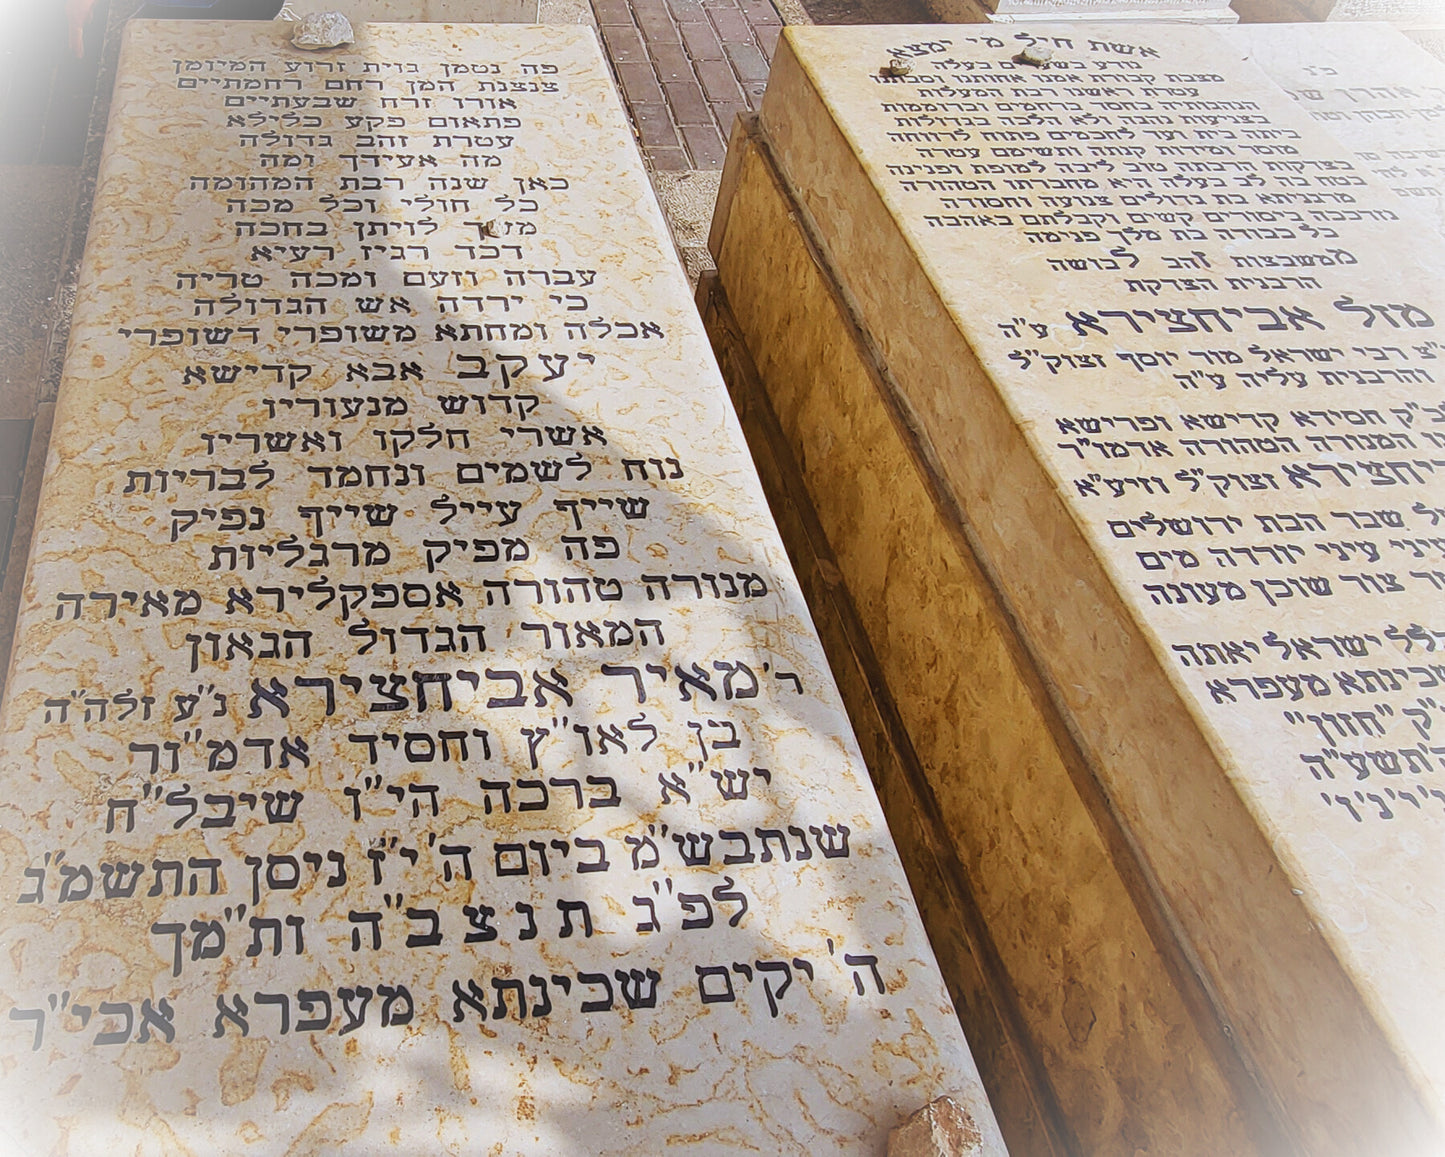 פה נטמן גוית זרוע המיומן
צנצנת המן רחם רחמתיים
אורו זרח שבעתיים
פתאום פקע כלילא
עטרת זהב גדולה
מה אעידך ומה
כאן שנה רבת המהומה
כל חולי וכל מכה
לויתן בחכה
דכד רגיז רעיא
עברה וזעם ומכה טריה
כי ירדה אש הגדולה
אכלה ומחתא משופרי דשופרי
יעקב אבא קדישא
קדוש מנעוריו
אשרי חלקו ואשריו
נוח לשמים ונחמד לבריות
שייף עייל שייך נפיק
פה מפיק מרגליות
מנורה טהורה אספקלירא מאירה
המאור הגדול הגאון
ר' מאיר אביחצירא נ"ע זלה"ה
בן לאו"ץ וחסיד אדמ"ור
יש"א ברכה הי"ו שיבל"ח
שנתבש"מ ביום ה' י"ז ניסן התשמ"ג
לפ"ג ת נ צ ב"ה ות"מך
ה' יקים שכינתא מעפרא אכי"ר
אשת חיל מי ימצא
נודע בשערים בעלה
מצבת קבורת אמנו אחותנו וסבתנו
עטרת ראשנו רבת המעלות
הנוהבותיה בחסד ברחמים וברוממות
בצניעות נהגה ולא הלכה בגדולות
ביתה בית ועד לחכמים פתוח לרווחה
מוסר ומידות קנתה ותשימם עטרה
בצדקות הרבתה טוב ליבה למופת ופנינה
בטח בה לב בעלה היא מחברתו הטהורה
מרגניתא בת גדולים צנועה וחסודה
נזדככה ביסורים קשים וקבלתם באהבה
כל כבודה בת מלך פנימה
ממשבצות זהב לבושה
הרבנית הצדקת
מזל אביחצירא ע"ה
רבי ישראל מור יוסף זצוק"ל
והרבנית עליה ע"ה
חסידא קדישא ופרישא
המנורה הטהורה אדמו"ר
וצוק"ל וזיע"א
שבר הבת ירושלים
עיני יורדה מים
צור שוכן מעונה
ישראל יאתה
מעפרא
"חזון"